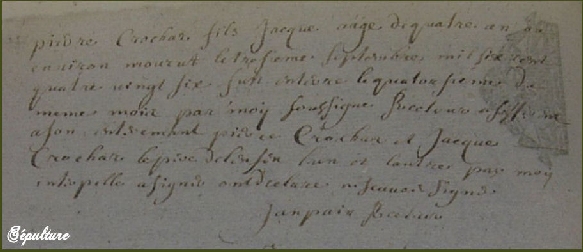 pierre Crochar fils Jacque aage de quatre an ou
environ mourut le treseme septembre mil six cent
quatre vingt six fut enterre le quatorsieme du
meme mois par moy soussigne Recteur assisterent
a son enterement pierre Crochar et Jacque
Crochar le pere de lenfen lun et lautre par moy
interpelle a signer ont declare ne scavoir signer
Janpaix Recteur
Sépulture